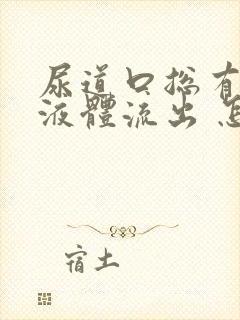 尿道口总有
液體流出 怎
宿土